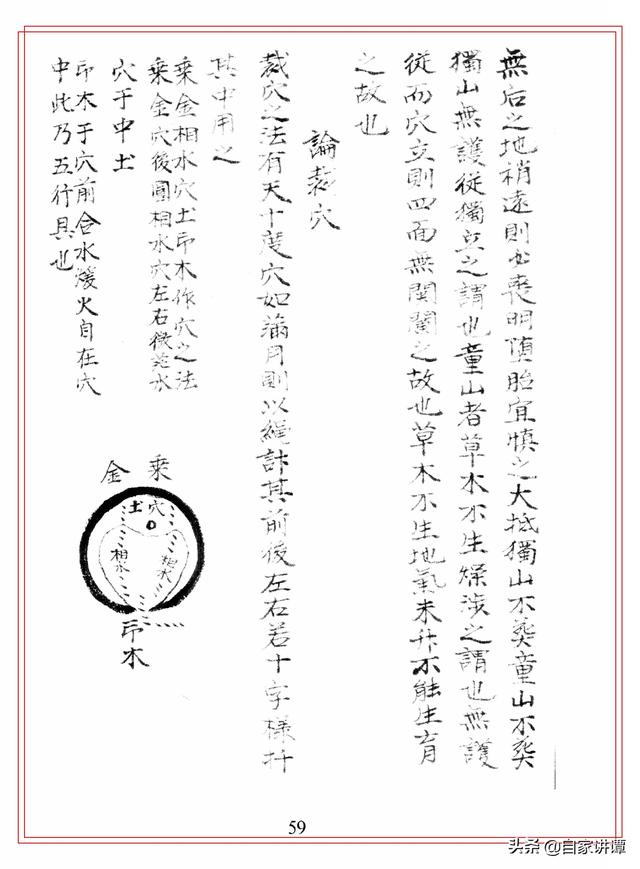 無后之地稍遠則必喪明墮胎宜慎之大抵獨山不葬童山不葬
獨山無護從獨立之謂也童山者草木不生燥涉之謂也無護
從而穴立則四面無関闌之故也草木不生地氣未升不能生育
之故也
論裁穴
裁穴之法有天十度穴如滿月則以繩計其前後左右若十字樣扦
其中用之
乘金相水穴土印木作穴之法
乘金穴後圓相水穴左右微茫水
穴于中土
印木于穴前合水煖火自在穴
中此乃五行具也
乘金
穴土
相水
相水
印木
59
头条 @自家讲谭